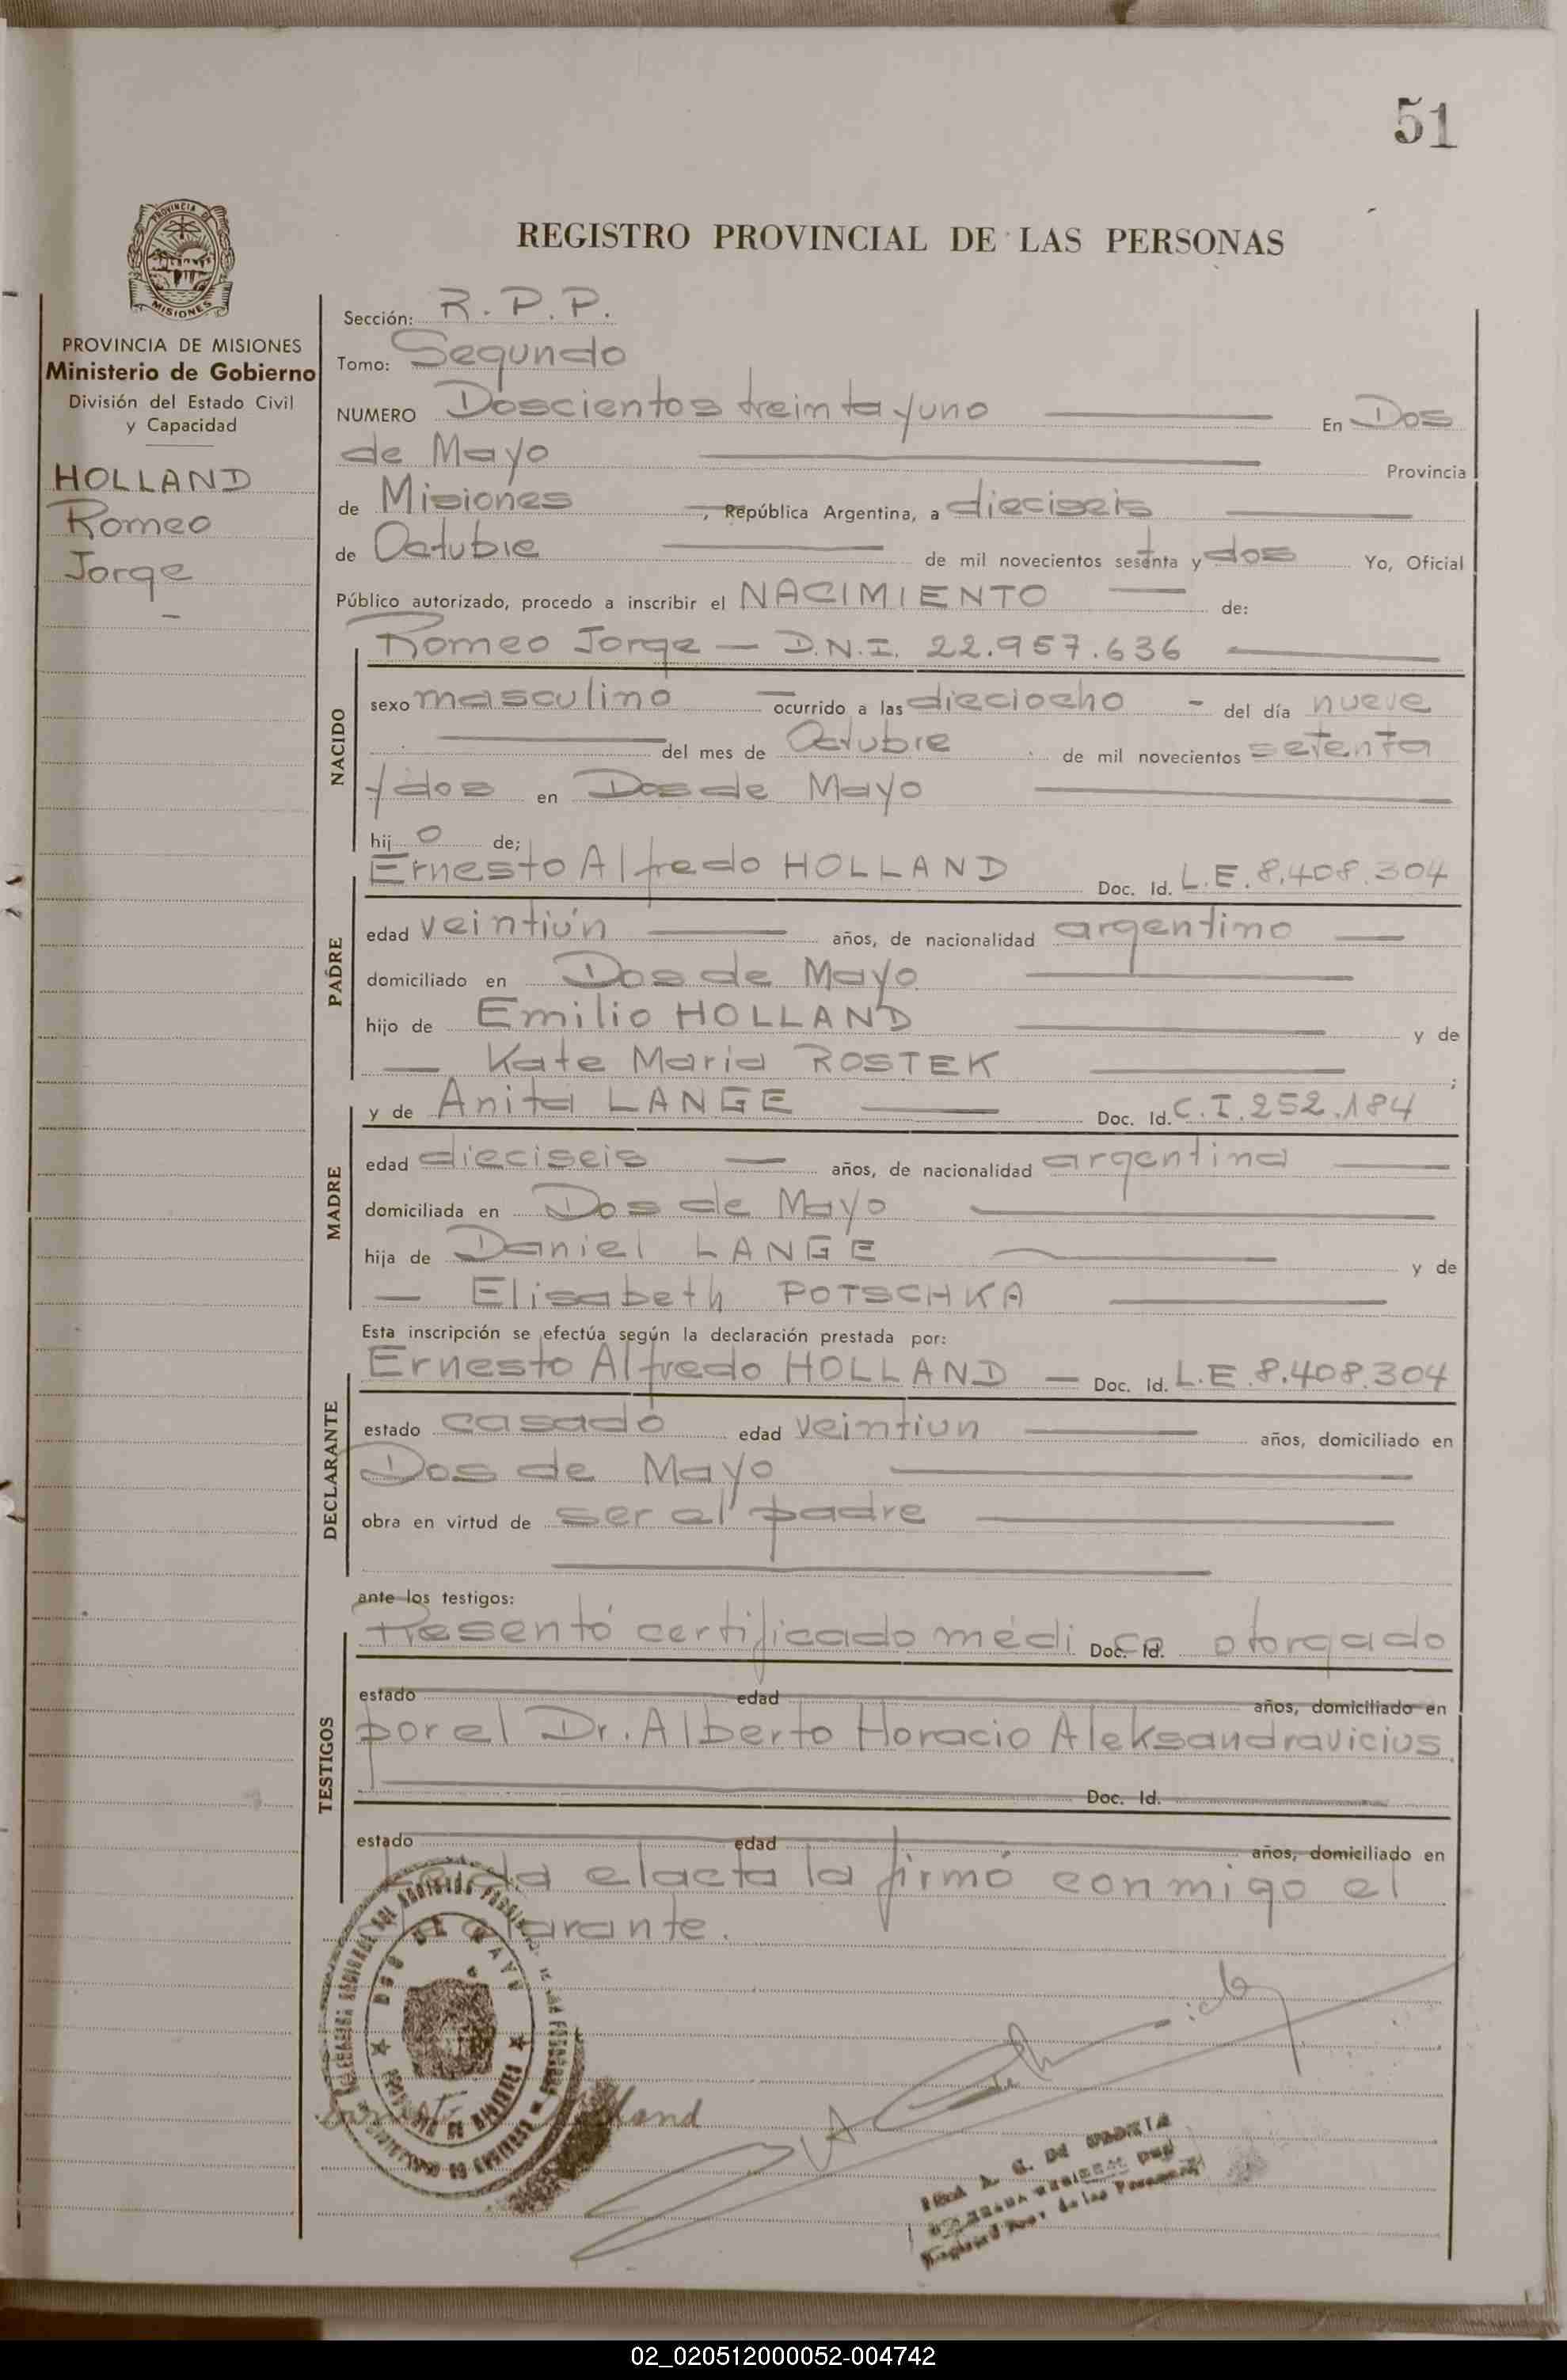 51
PROVINCIA DE
MISIONES
REGISTRO PROVINCIAL DE LAS PERSONAS
PROVINCIA DE MISIONES
Ministerio de Gobierno
División del Estado Civil
y Capacidad
HOLLAND
Romeo
Jorge
Sección: R. P. P.
Tomo: Segundo
NUMERO Doscientos treinta y uno En Dos
de Mayo Provincia
de Misiones, República Argentina, a dieciseis
de Octubre de mil novecientos setenta y dos Yo, Oficial
Público autorizado, procedo a inscribir el NACIMIENTO de:
Romeo Jorge — D.N.I. 22.957.636
NACIDO
sexo masculino — ocurrido a las dieciocho - del día nueve
del mes de Octubre de mil novecientos setenta
y dos en Dos de Mayo
hijo de;
Ernesto Alfredo HOLLAND Doc. Id. L.E. 8.408.304
PADRE
edad veintiún años, de nacionalidad argentino —
domiciliado en Dos de Mayo
hijo de Emilio HOLLAND y de
— Kate Maria ROSTEK ;
y de Anita LANGE Doc. Id. C.I. 252.184
MADRE
edad dieciseis — años, de nacionalidad argentina
domiciliada en Dos de Mayo
hija de Daniel LANGE y de
— Elisabeth POTSCHKA
Esta inscripción se efectúa según la declaración prestada por:
Ernesto Alfredo HOLLAND — Doc. Id. L.E. 8.408.304
DECLARANTE
estado casado edad veintiun años, domiciliado en
Dos de Mayo
obra en virtud de ser el padre
ante los testigos:
Presentó certificado médico Doc. Id. otorgado
TESTIGOS
estado edad años, domiciliado en
por el Dr. Alberto Horacio Aleksandravicius
Doc. Id.
estado edad años, domiciliado en
el acta la firmó conmigo el
DOS DE MAYO
02_020512000052-004742